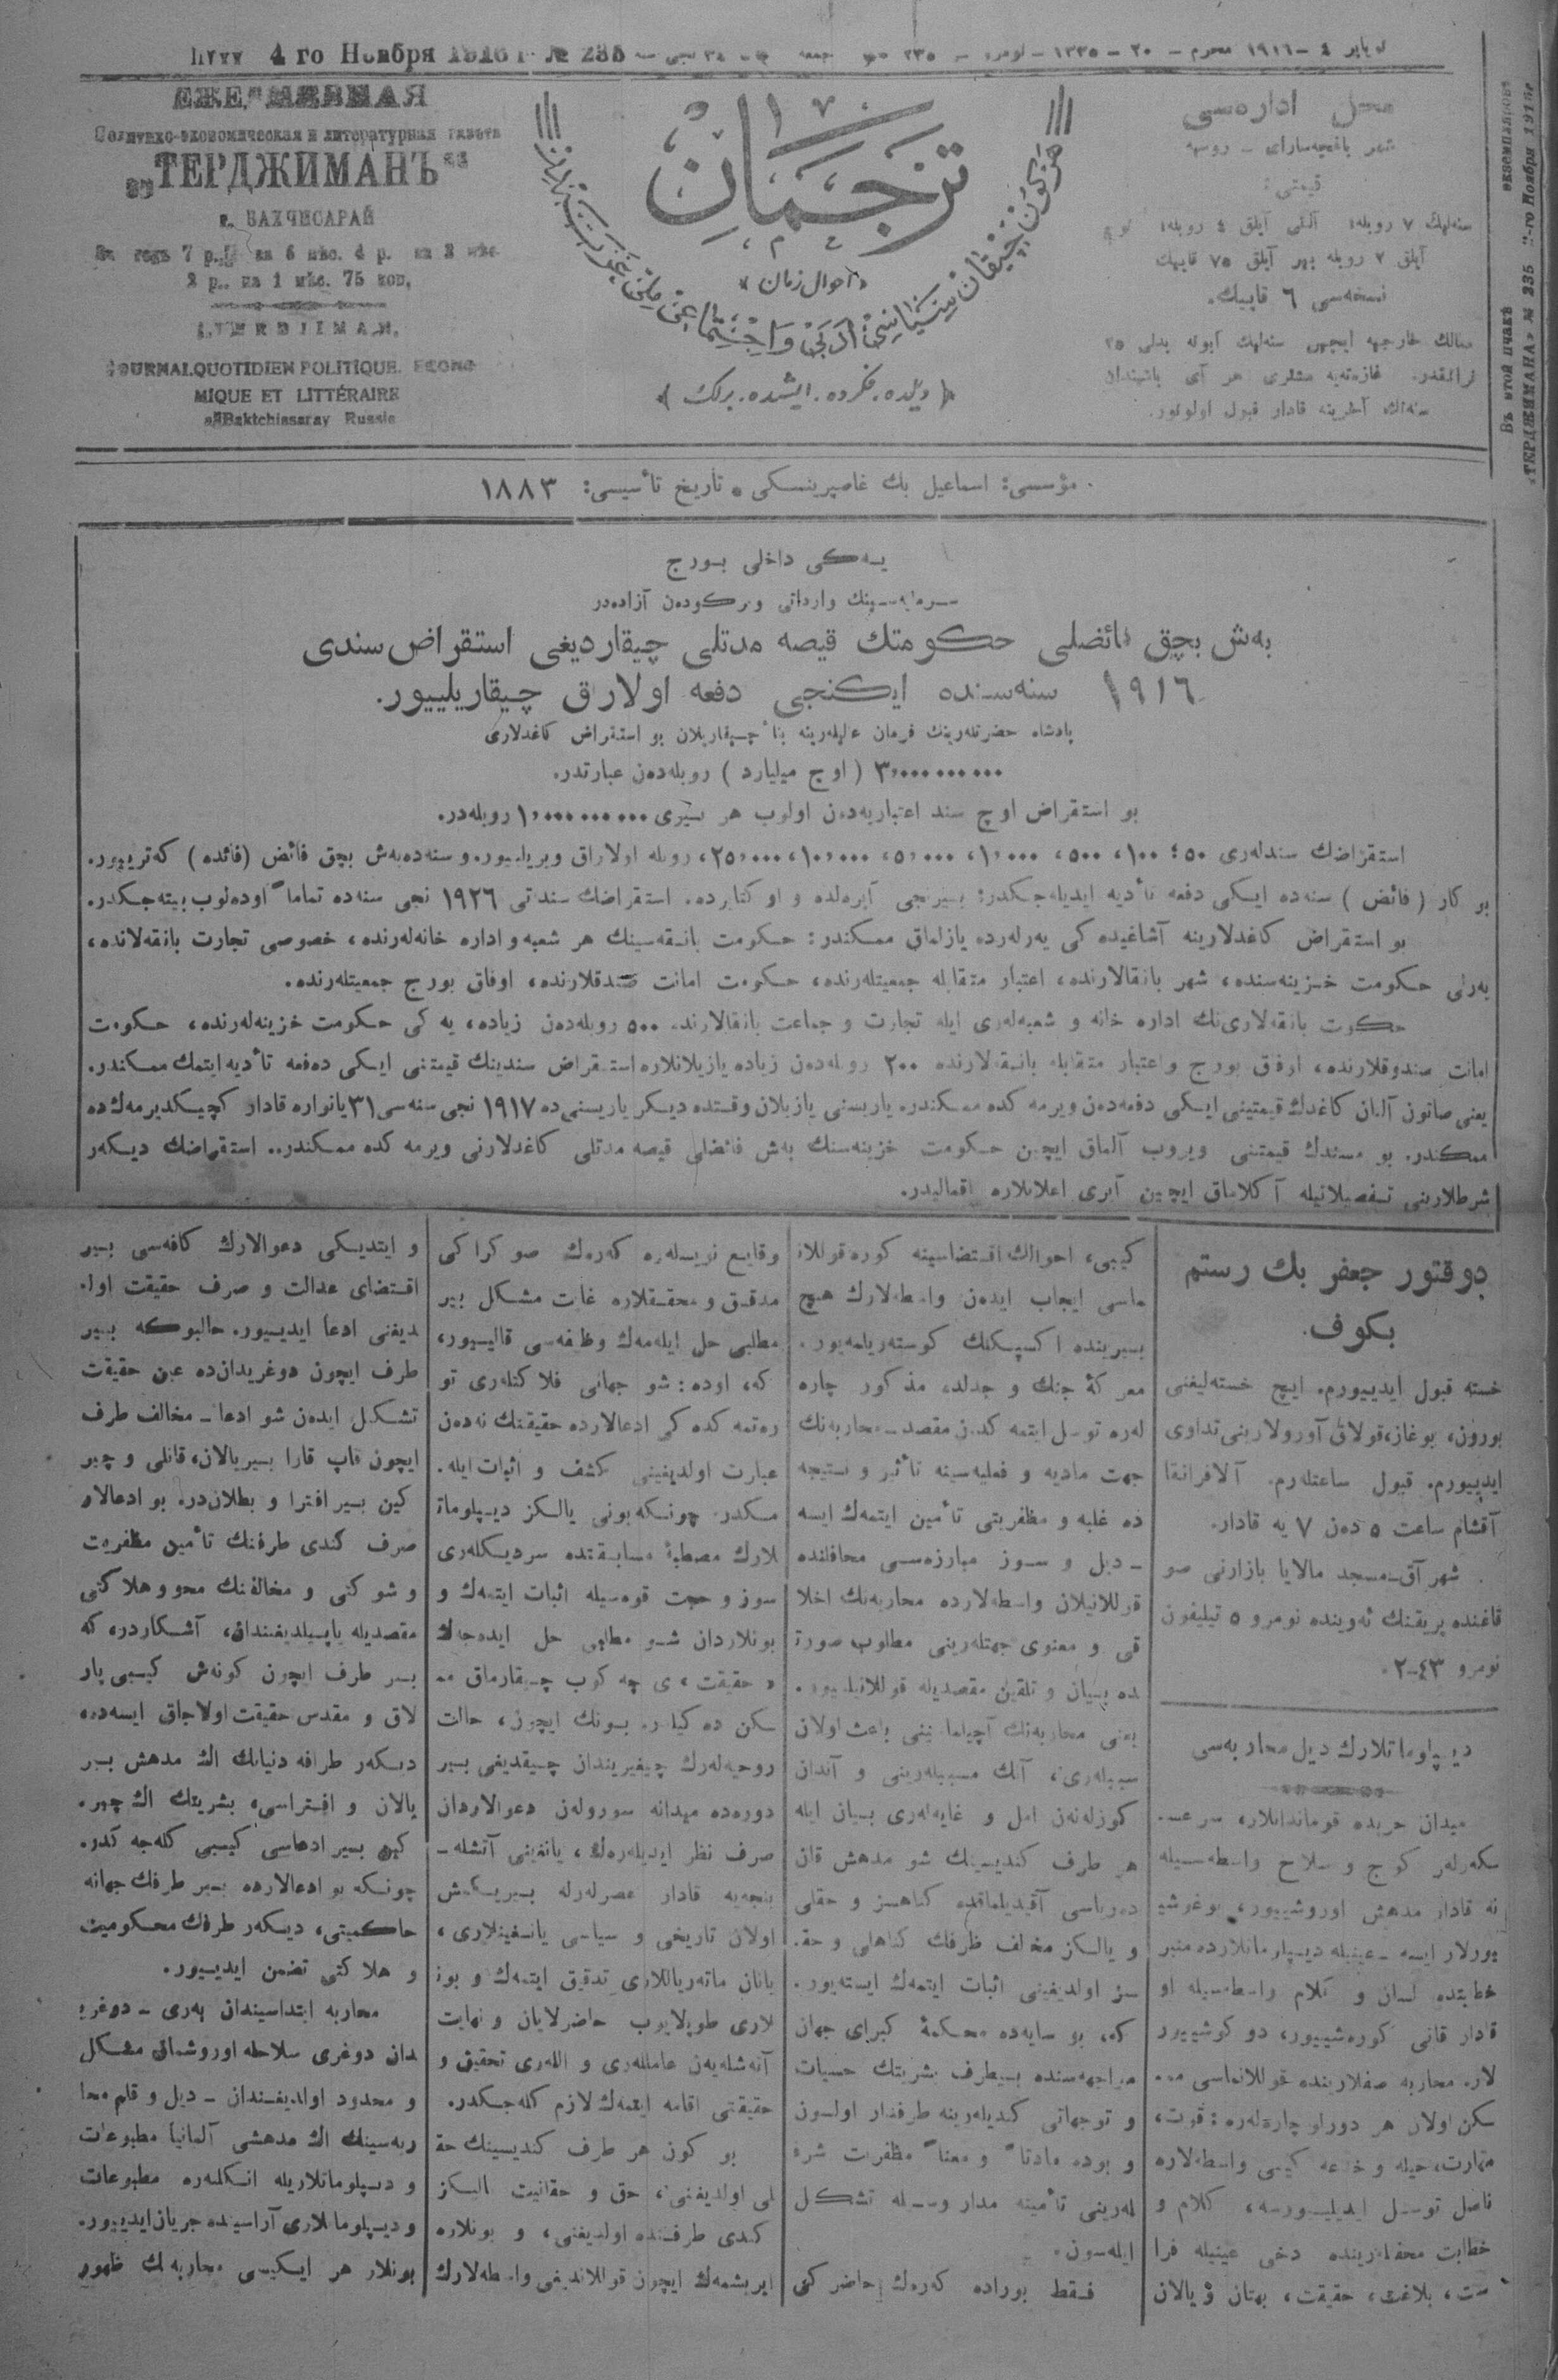 4 го Ноября 1916 г. № 235
ЕЖЕДНЕВНАЯ
Политико-экономическая и литературная газета
"ТЕРДЖИМАНЪ"
г. БАХЧИСАРАЙ
7 р. на 6 мѣс. 4 р. на 3 мѣс.
2 р. на 1 мѣс. 75 коп.
TERDJIMAN.
JOURNAL QUOTIDIEN POLITIQUE. ECONO
MIQUE ET LITTÉRAIRE
Baktchissaray Russie
ترجمان
احوال زمان
دیلده، فکرده، ایشده، برلك
محل اداره‌سی
شهر باغچه‌سرای – روسیه
قیمتی:
سنه‌لیك ٧ روبله؛ آلتی آیلق ٤ روبله؛
نسخه‌سی ٦ قاپیك.
مؤسسی: اسماعیل بك غاصپرینسکی • تاریخ تأسیسی: ١٨٨٣
یه‌کی داخلی بورج
سرمایه‌سینك وارداتی ویرکودەن آزادەدر
بەش بچق فائضلی حکومتك قیصه مدتلی چیقاردیغی استقراض سندی
١٩١٦ سنه‌سنده ایکنجی دفعه اولارق چیقاریلییور.
پادشاه حضرتلەرینك فرمان عالیلەرینه بناً چیقاریلان بو استقراض کاغدلاری
٣٬٠٠٠ ٠٠٠ ٠٠٠ ( اوچ میلیارد ) روبلەدەن عبارتدر.
بو استقراض اوچ سند اعتباریەدەن اولوب هر سیری ١٬٠٠٠ ٠٠٠ ٠٠٠ روبلەدر.
استقراضك سندلەری ٥٠؛ ١٠٠، ٥٠٠، ١٬٠٠٠، ٥٬٠٠٠، ١٠٬٠٠٠، ٢٥٬٠٠٠، روبله اولاراق ویریلییور. و سنەدە بەش بچق فائض (فائده) کەتریییور.
بو کار ( فائض ) سنەده ایکی دفعه تأدیه ایدیلەجکدر: بیرنجی آپرەلده و اوکتابرده. استقراضك سنداتی ١٩٢٦ نجی سنەده تماماً اودەلوب بیتەجکدر.
بو استقراض کاغدلارینه آشاغیده کی یەرلەرده یازلماق ممکندر: حکومت بانقەسینك هر شعبه و اداره خانەلەرنده، خصوصی تجارت بانقەلانده،
یەرلی حکومت خزینەسنده، شهر بانقالارنده، اعتبار متقابله جمعیتلەرنده، حکومت امانت صندقلارنده، اوفاق بورج جمعیتلەرنده.
حکومت بانقەلاری‌نك اداره خانه و شعبەلەری ایله تجارت و جماعت بانقالارنده ٥٠٠ روبلەدەن زیاده، یه کی حکومت خزینەلەرنده، حکومت
امانت صندوقلارنده، اوفق بورج و اعتبار متقابله بانقەلارنده ٢٠٠ روبلەدەن زیاده یازیلانلاره استقراض سندینك قیمتنی ایکی دەفعه تأدیه ایتمك ممکندر.
یعنی صاتون آلان کاغدك قیمتینی ایکی دفعەدەن ویرمه کده ممکندر. یاریسنی یازیلان وقتده دیکر یاریسنی‌ده ١٩١٧ نجی سنەسی ٣١ یانواره قادار کچیکدیرمەك‌ده
ممکندر. بو سندك قیمتنی ویروب آلماق ایچین حکومت خزینەسنك بەش فائضلی قیصه مدتلی کاغدلارنی ویرمه کده ممکندر.. استقراضك دیکەر
شرطلارینی تفصیلاتیله آکلاماق ایچین آیری اعلانلاره باقمالیدر.
دوقتور جعفر بك رستم
بکوف.
خسته قبول ایدییورم. ایچ خستەلیغنی
بورون، بوغاز، قولاق آورولارینی تداوی
ایدییورم. قبول ساعتلەرم. آلافرانقا
آقشام ساعت ٥ دەن ٧ یه قادار.
شهر آق-مسجد مالایا بازارنی صو
قاغنده پریقنك ئەوینده نومرو ٥ تیلیفون
نومرو ٤٣-٢.
دیپلوماتلارك دیل محاربەسی
میدان حربده قوماندانلار، سر عسـ
کەرلەر کوچ و سلاح واسطەسیله
نه قادار مدهش اوروشییور، بوغوشی
یورلار ایسه – عینیله دیپلوماتلارده منبر
خطابتده لسان و کلام واسطەسیله او
قادار قانی کورەشییور، دوکوشییور
لار. محاربه صفلارینده قوللانماسی ممـ
کن اولان هر دورلو چارەلەره: قوت،
مهارت، حیله و خدعه کیبی واسطەلاره
ناصل توسل ایدیلییورسه، کلام و
خطابت محفلەرینده دخی عینیله فرا
ست، بلاغت، حقیقت، بهتان و یالان
کیبی، احوالك اقتضاسینه کوره قوللا
ماسی ایجاب ایدەن واسطەلارك هیچ
بیرینده اکسیکلك کوستەریلمەیور.
معرکۀ جنك و جدلده مذکور چاره
لەره توسل ایتمه کدەن مقصد – محاربەنك
جهت مادیه و فعلیەسینه تأثیر و نتیجه
ده غلبه و مظفریتی تأمین ایتمەك ایسه
– دیل و سوز مبارزەسی محافلنده
قوللانیلان واسطەلارده محاربەنك اخلا
قی و معنوی جهتلەرینی مطلوب صورتـ
ده بیان و تلقین مقصدیله قوللانیلییور.
یعنی محاربەنك آچیلماسینی باعث اولان
سببلەری، آنك مسببلەرینی و آندان
کوزلەنەن امل و غایەلەری بیان ایله
هر طرف کندیسینك شو مدهش قان
دەریاسی آقیدیلماقده کناهسز و حقلی
و یالکز مخالف طرفك کناهلی و حقـ
سز اولدیغینی اثبات ایتمەك ایستەیور.
که، بو سایەده محکمۀ کبرای جهان
مواجهەسنده بیطرف بشریتك حسیات
و توجهاتی کندیلەرینه طرفدار اولسون
و بوده مادتاً و معناً مظفریت شره
لەرینی تأمینه مدار وسیله تشکل
ایلەسون.
فقط بوراده کەرەك حاضر کی
وقایع نویسلەره کەرەك صوکراکی
مدقق و محققلاره غایت مشکل بیر
مطلبی حل ایلەمەك وظیفەسی قالییور،
که، اوده: شو جهانی فلاکتلەری تو
رەتمه کده کی ادعالارده حقیقتك نەدەن
عبارت اولدیغینی کشف و اثبات ایله.
مکدر. چونکه بونی یالکز دیپلوماتـ
لارك مصطبۀ مسابقتده سردیکلەری
سوز و حجت قوەسیله اثبات ایتمەك و
بونلاردان شو مطلبی حل ایدەجەك
« حقیقت » ی چه کوب چیقارماق ممـ
کن ده کیلدر. بونك ایچون، حالت
روحیەلەرك چیغیریندان چیقدیغی بیر
دورەده میدانه سورولەن دعوالاردان
صرف نظر ایدیلەرەك، یانغینی آتشلەـ
ینجەیه قادار عصرلەرله بیریکمش
اولان تاریخی و سیاسی یانغینلاری،
یانان ماتەریاللاری تدقیق ایتمەك و بونـ
لاری طوپلایوب حاضرلایان و نهایت
آتەشلەیەن عامللەری و اللەری تحقیق و
حقیقتی اقامه ایتمەك لازم کلەجکدر.
بو کون هر طرف کندیسینك حقـ
لی اولدیغنی، حق و حقانیت یالکز
کندی طرفنده اولدیغنی، و بونلاره
ایریشمەك ایچون قوللاندیغی واسطەلارك
و ایتدیکی دعوالارك کافەسی بیر
اقتضای عدالت و صرف حقیقت اولـ
دیغنی ادعا ایدییور. حالبوکه بیر
طرف ایچون دوغریدان‌ده عین حقیقت
تشکیل ایدەن شو ادعا – مخالف طرف
ایچون قاپ قارا بیر یالان، قانلی و چیر
کین بیر افترا و بطلان‌در. بو ادعالار
صرف کندی طرفنك تأمین مظفریت
و شوکتی و مخالفنك محو و هلاکتی
مقصدیله یاپیلدیغندان، آشکاردر، که
بیر طرف ایچون کونەش کیبی پار
لاق و مقدس حقیقت اولاجاق ایسەده،
دیکەر طرافه دنیانك اك مدهش بیر
یالان و افتراسی، بشریتك اك چیر.
کین بیر ادعاسی کیبی کلەجه کدر.
چونکه بو ادعالارده بیر طرفك جهانه
حاکمیتی، دیکەر طرفك محکومیت
و هلاکتی تضمن ایدییور.
محاربه ابتداسیندان بەری – دوغریـ
دان دوغری سلاحله اوروشماق مشکل
و محدود اولدیغندان – دیل و قلم محا
ربەسینك اك مدهشی آلمانیا مطبوعات
و دیپلوماتلاریله انکلتەره مطبوعات
و دیپلوماتلاری آراسیده جریان ایدییور.
بونلار هر ایکیسی محاربەنك ظهور